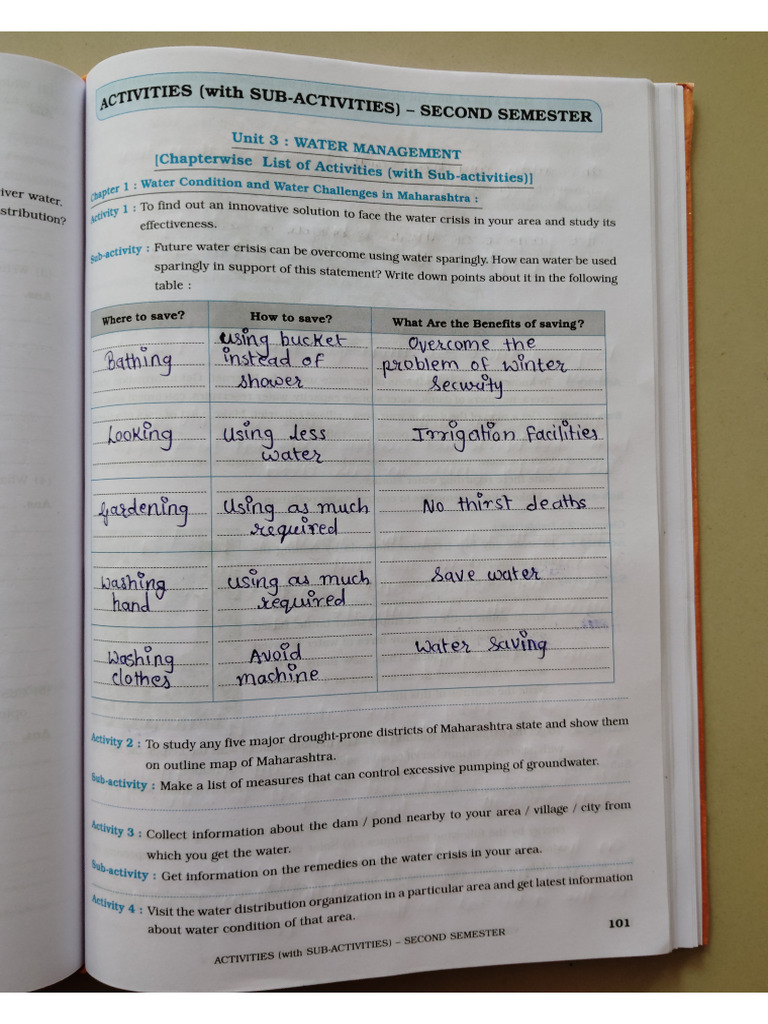 iver water.
stribution?
ACTIVITIES (with SUB-ACTIVITIES) – SECOND SEMESTER
Unit 3 : WATER MANAGEMENT
[Chapterwise List of Activities (with Sub-activities)]
Chapter 1 : Water Condition and Water Challenges in Maharashtra :
Activity 1 : To find out an innovative solution to face the water crisis in your area and study its
effectiveness.
Sub-activity : Future water crisis can be overcome using water sparingly. How can water be used
sparingly in support of this statement? Write down points about it in the following
table :
Where to save? How to save? What Are the Benefits of saving?
Bathing
using bucket
instead of
shower
Overcome the
problem of winter
security
Looking
Using less
water
Irrigation facilities
Gardening
Using as much
required
No thirst deaths
Washing
hand
using as much
required
Save water
Washing
clothes
Avoid
machine
Water saving
Activity 2 : To study any five major drought-prone districts of Maharashtra state and show them
on outline map of Maharashtra.
Sub-activity : Make a list of measures that can control excessive pumping of groundwater.
Activity 3 : Collect information about the dam / pond nearby to your area / village / city from
which you get the water.
Sub-activity : Get information on the remedies on the water crisis in your area.
Activity 4 : Visit the water distribution organization in a particular area and get latest information
about water condition of that area.
ACTIVITIES (with SUB-ACTIVITIES) – SECOND SEMESTER
101